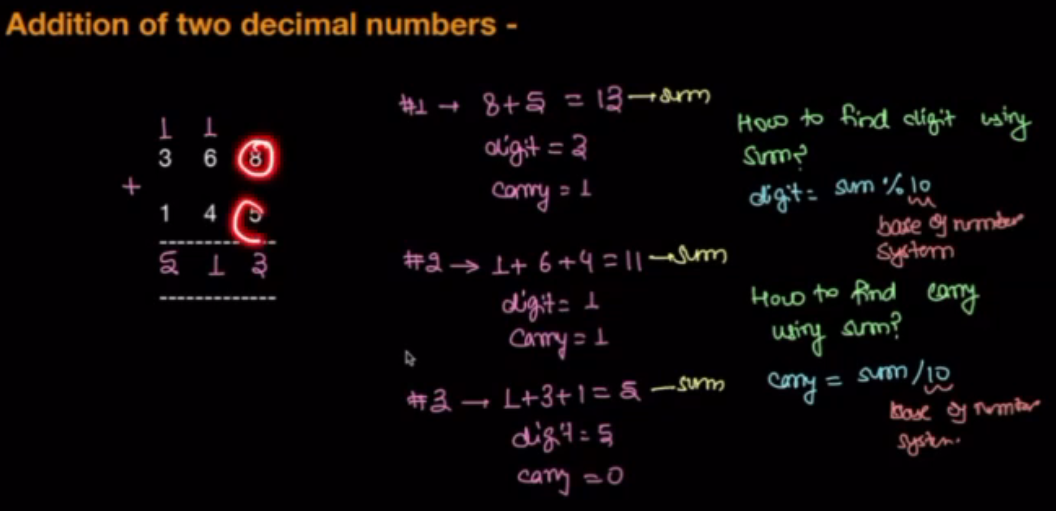 Addition of two decimal numbers -
1 1
3 6 8
+
1 4 5
-----------------
5 1 3
-----------------
#1 → 8+5 = 13 → sum
digit = 3
carry = 1
#2 → 1+6+4 = 11 → sum
digit = 1
carry = 1
#3 → 1+3+1 = 5 — sum
digit = 5
carry = 0
How to find digit using
sum?
digit = sum % 10
base of number
system
How to find carry
using sum?
carry = sum/10
base of number
system.